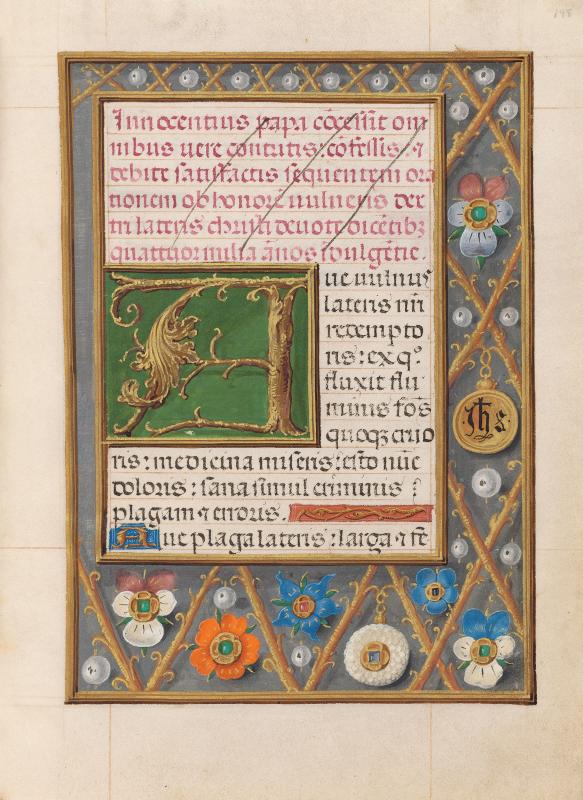 198
Innocentius papa cōcessit om
nibus vere contritis: cōfessis: ⁊
debite satisfactis sequentem ora
tionem ob honorē uulneris dex
tri lateris christi deuote dicētibꝫ
quattuor milia ānos īdulgētie.
Aue uulnus
lateris nr̄i
redempto
ris: ex q°
fluxit flu
minis fōs
quoqꝫ cruo
ris: medicina miseris: esto nūc
doloris: sana simul criminis
plagam ⁊ erroris.
Aue plaga lateris: larga ⁊ fe
Jhs